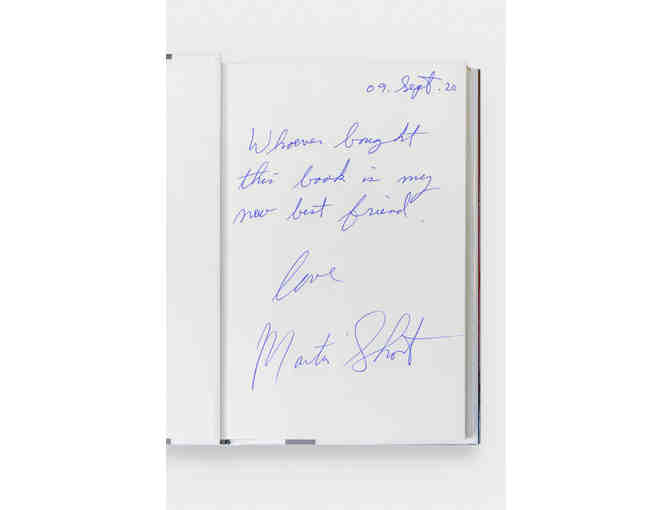 09. Sept. 20
Whoever bought
this book is my
new best friend.
love
Martin Short